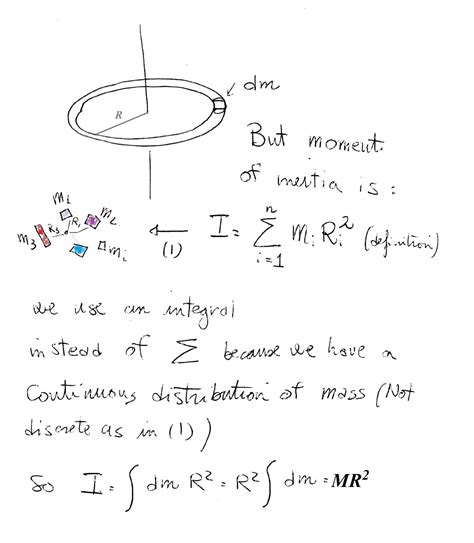 dm
R
But moment
of inertia is :
m₁
R₁
m₂
R₃
m₃
mᵢ
(1)
I = ∑ᵢ₌₁ⁿ mᵢ Rᵢ² (definition)
we use an integral
instead of ∑ because we have a
Continuous distribution of mass (Not
discrete as in (1))
So I = ∫ dm R² = R² ∫ dm = MR²